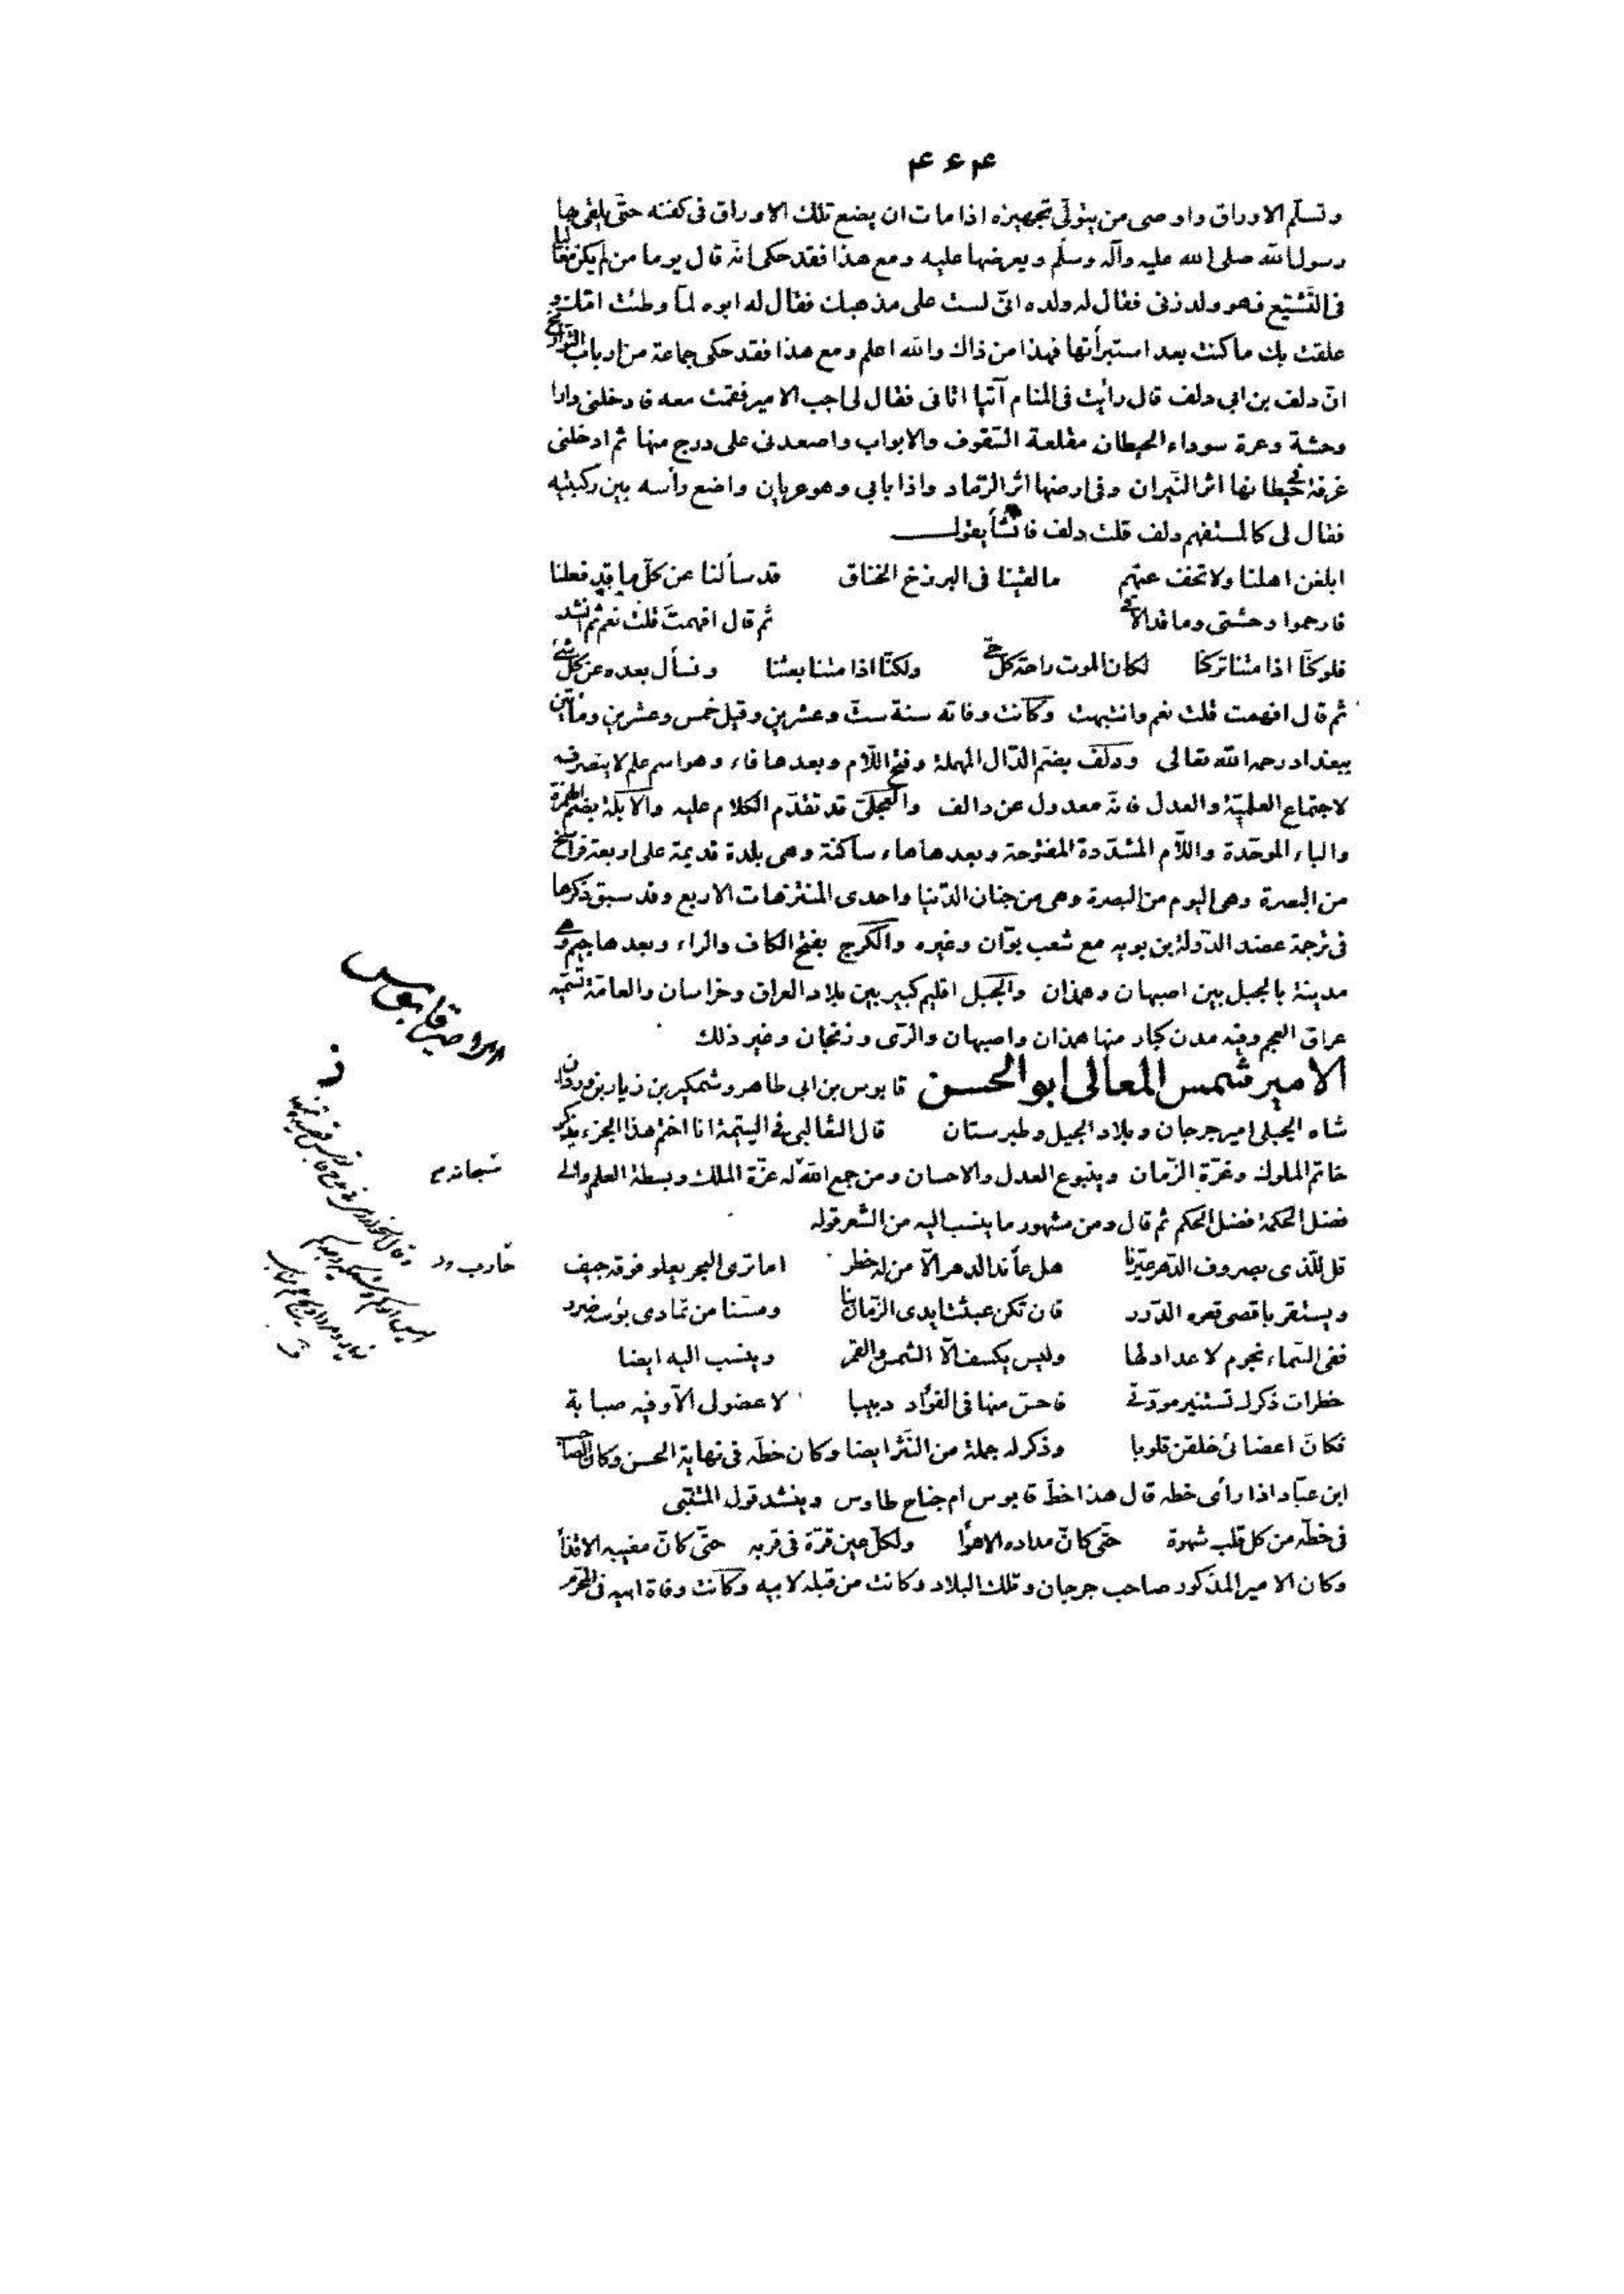 ۴۶۴
وتسلّم الاوراق واوصى من يتولّى تجهيزه اذا مات ان يضع تلك الاوراق فى كفنه حتّى يلقى بها
رسول الله صلى الله عليه وآله وسلّم ويعرضها عليه ومع هذا فقد حكى انّه قال يوما من لم يكن مغاليا
فى التّشيّع فهو ولد زنى فقال له ولده انّى لست على مذهبك فقال له ابوه لمّا وطئت امّك و
علقت بك ما كنت بعد استبرأتها فهذا من ذاك والله اعلم ومع هذا فقد حكى جماعة من ارباب التواريخ
انّ دلف بن ابى دلف قال رأيت فى المنام آتيا اتانى فقال لى اجب الامير فقمت معه فادخلنى دارا
وحشة وعرة سوداء الحيطان مقلعة السّقوف والابواب واصعدنى على درج منها ثم ادخلنى
غرفة فى حيطانها اثر النّيران وفى ارضها اثر الرّماد واذا بابى وهو عريان واضع رأسه بين ركبتيه
فقال لى كالمستفهم دلف قلت دلف فانشأ يقول
ابلغن اهلنا ولا تخف عنهم ما لقينا فى البرزخ الخناق قد سألنا عن كلّ ما قد فعلنا
فارحموا وحشتى وما قد الاقى ثم قال افهمت قلت نعم ثم انشد
فلو كنّا اذا متنا تركنا لكان الموت راحة كلّ حىّ ولكنّا اذا متنا بعثنا ونسأل بعده عن كلّ شئ
ثم قال افهمت قلت نعم وانتبهت وكانت وفاته سنة ستّ وعشرين وقيل خمس وعشرين ومأتين
ببغداد رحمه الله تعالى ودلف بضم الدّال المهملة وفتح اللّام وبعدها فاء وهو اسم علم لا ينصرف
لاجتماع العلميّة والعدل فانّه معدول عن دالف والعجلىّ قد تقدّم الكلام عليه والابلّة بضمّ الهمزة
والباء الموحّدة واللّام المشدّدة المفتوحة وبعدها هاء ساكنة وهى بلدة قديمة على اربعة فراسخ
من البصرة وهى اليوم من البصرة وهى من جنان الدّنيا واحدى المنتزهات الاربع وقد سبق ذكرها
فى ترجمة عضد الدّولة بن بويه مع شعب بوّان وغيره والكرج بفتح الكاف والراء وبعدها جيم وهى
مدينة بالجبل بين اصبهان وهمذان والجبل اقليم كبير بين بلاد العراق وخراسان والعامّة تسمّيه
عراق العجم وفيه مدن كبار منها همذان واصبهان والرّى وزنجان وغير ذلك
الامير شمس المعالى ابو الحسن قابوس بن ابى طاهر وشمكير بن زيار بن وردان
شاه الجيلى امير جرجان وبلاد الجيل وطبرستان قال الثعالبى فى اليتيمة انا اختم هذا الجزء بذكر
خاتم الملوك وغرّة الزّمان وينبوع العدل والاحسان ومن جمع الله له عزّة الملك وبسطة العلم والى
فضل الحكمة فضل الحكم ثم قال ومن مشهور ما ينسب اليه من الشعر قوله
قل للّذى بصروف الدّهر عيّرنا هل عاند الدهر الّا من له خطر اما ترى البحر يعلو فوقه جيف
ويستقر باقصى قعره الدّرر فان تكن عبثت ايدى الزّمان بنا ومسّنا من تمادى بؤسه ضرر
ففى السّماء نجوم لا عداد لها وليس يكسف الّا الشمس والقمر وينسب اليه ايضا
خطرات ذكرك تستثير مودّتى فاحسّ منها فى الفؤاد دبيبا لا عضو لى الّا وفيه صبابة
فكانّ اعضائى خلقن قلوبا وذكر له جملة من النّثر ايضا وكان خطّه فى نهاية الحسن وكان الصاحب
ابن عبّاد اذا رأى خطه قال هذا خطّ قابوس ام جناح طاوس وينشد قول المتنبّى
فى خطّه من كل قلب شهوة حتّى كانّ مداده الاهواء ولكلّ عين قرّة فى قربه حتّى كانّ مغيبه الاقذاء
وكان الامير المذكور صاحب جرجان وتلك البلاد وكانت من قبله لابيه وكانت وفاة ابيه فى المحرّم
الامير قابوس